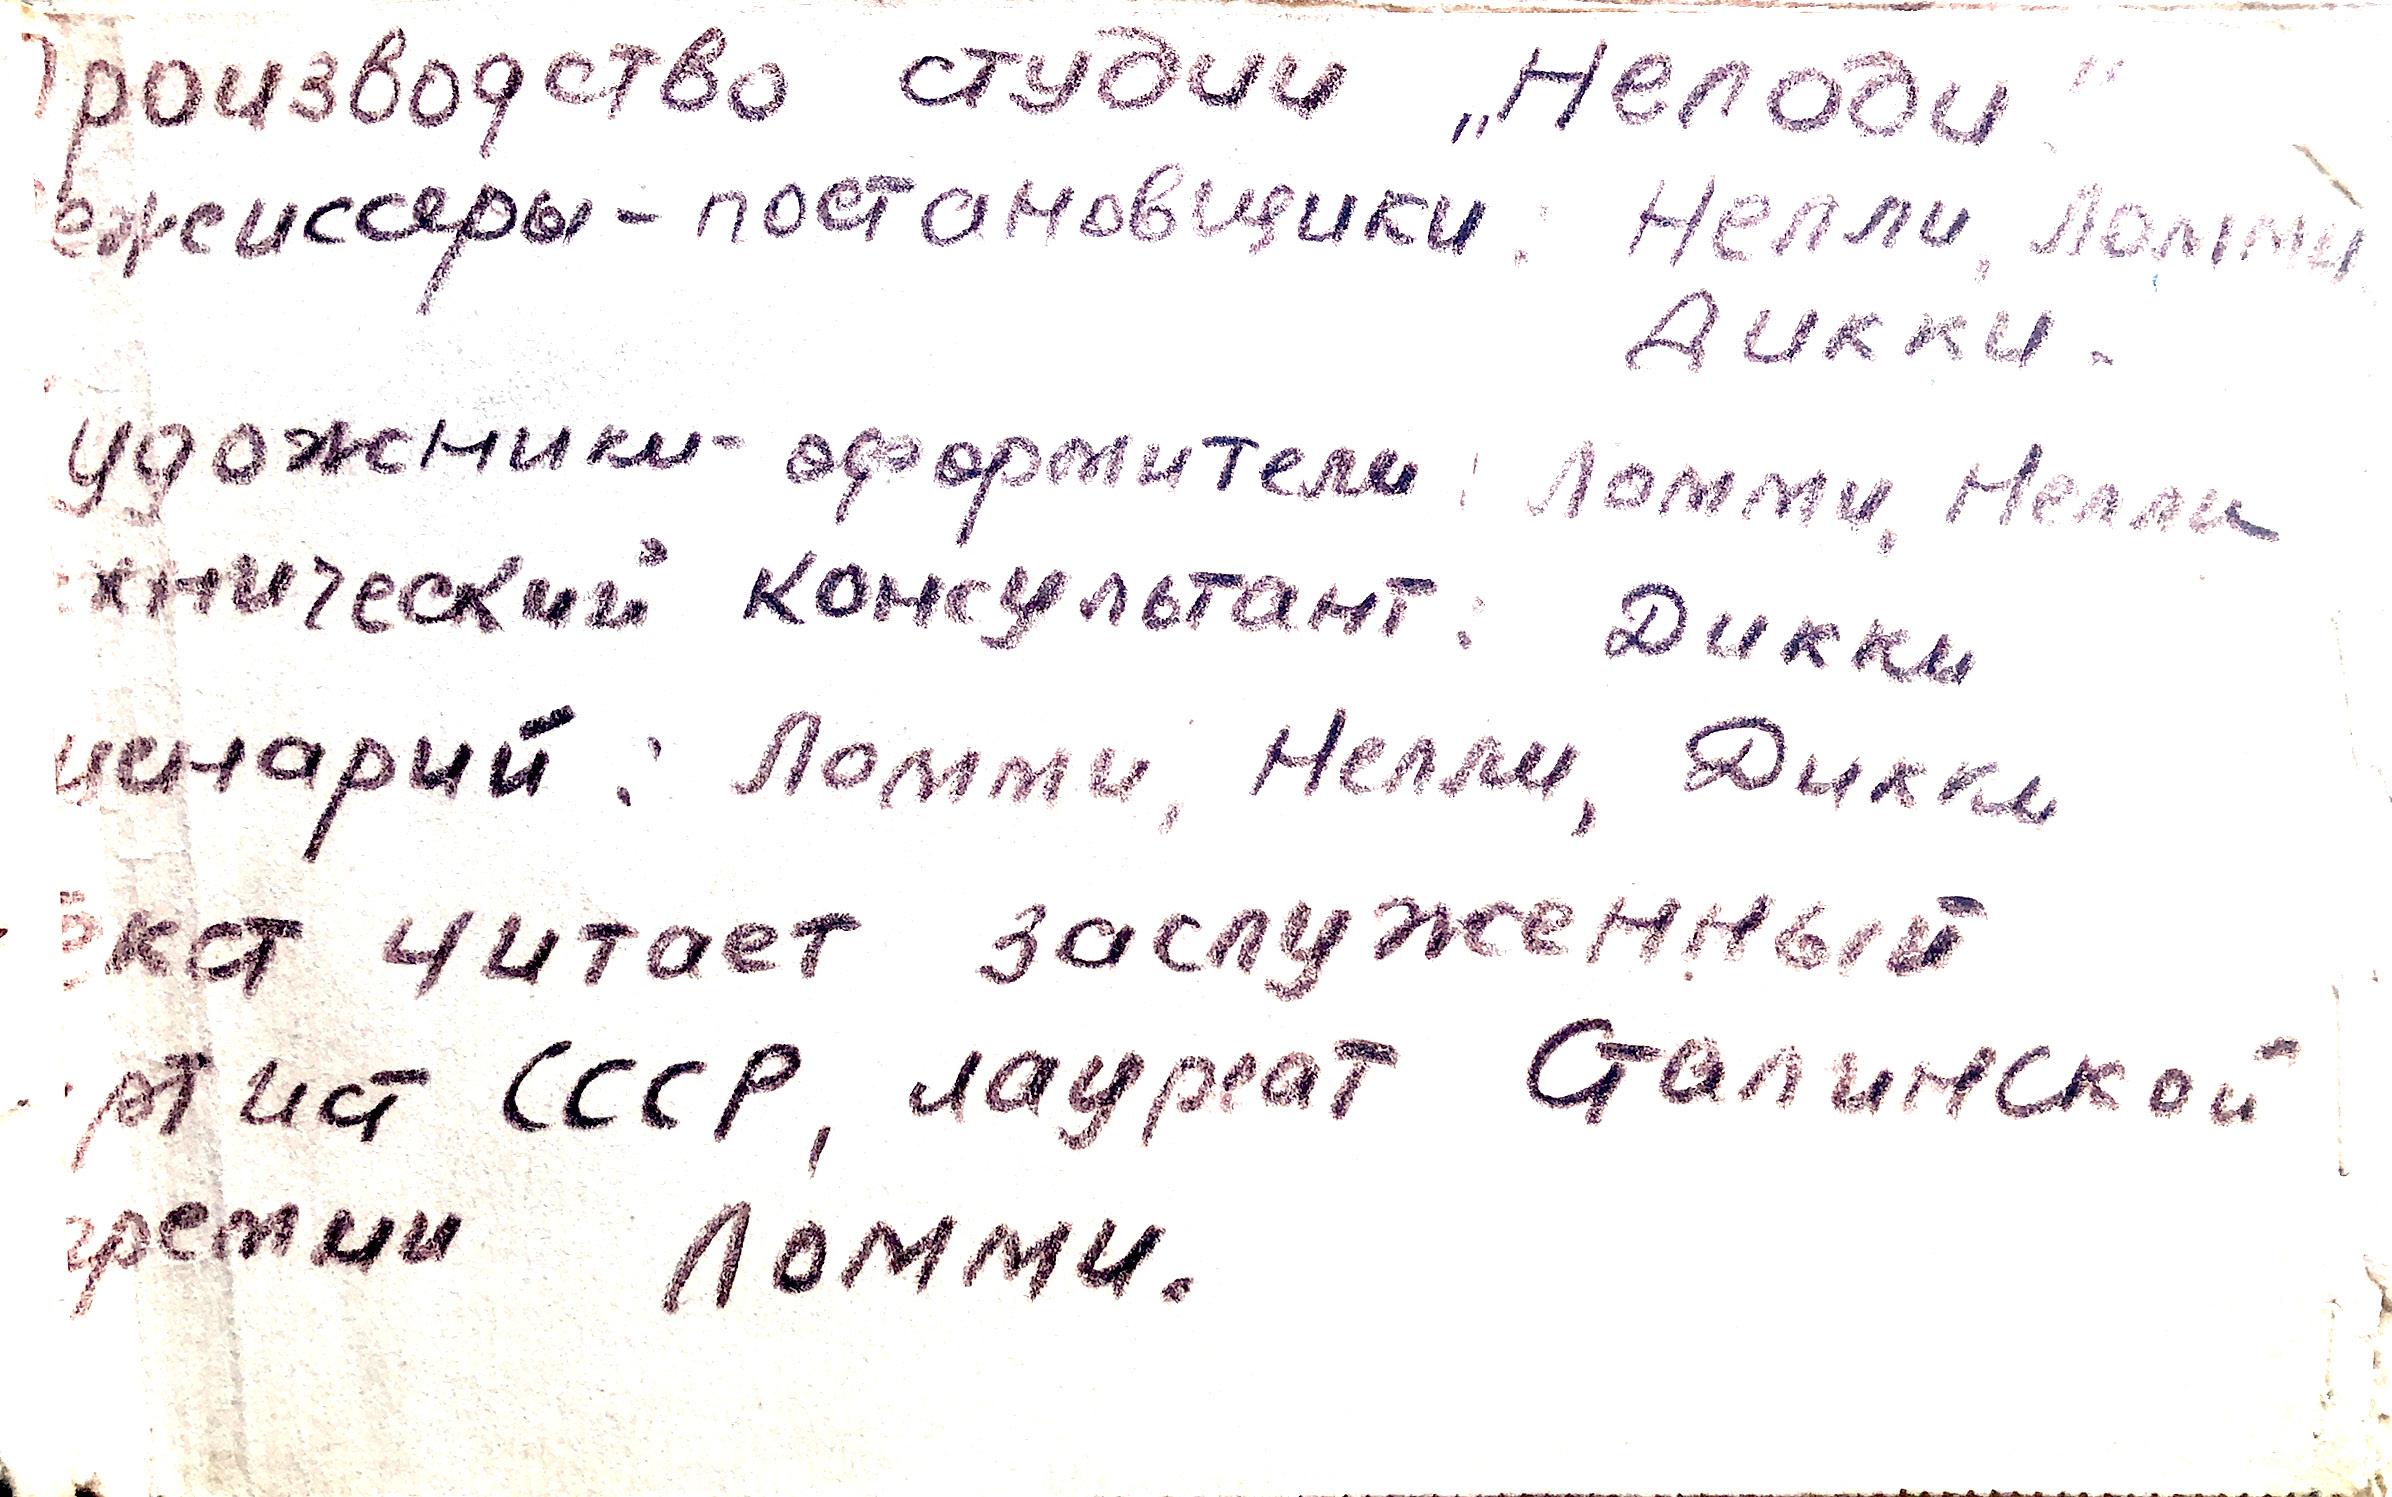 Производство студии „Нелоди."
ежиссеры-постановщики: Нелли, Ломми
Дикки.
удожники-оформители: Ломми, Нелли
хнический консультант: Дикки
ценарий: Ломми, Нелли, Дикки
екст читает заслуженный
ртист СССР, лауреат Сталинской
премии Ломми.